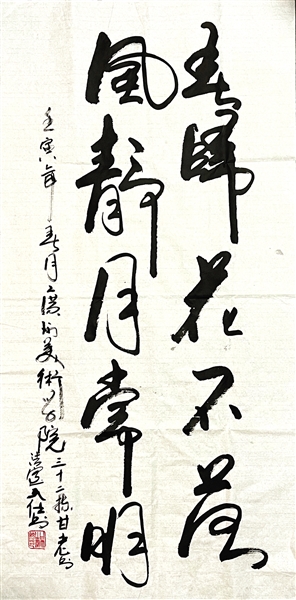 春歸花不落
風靜月常明
壬寅年春月廣州美術學院三十二